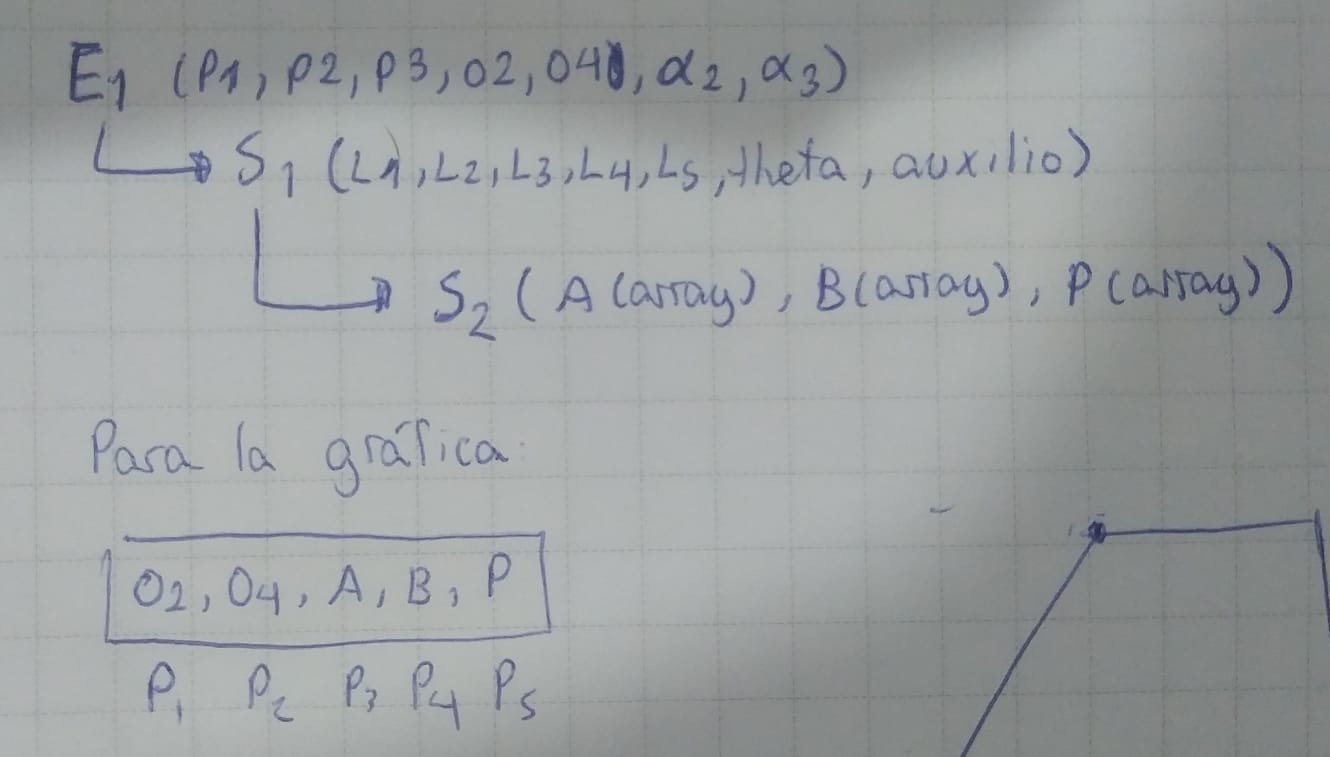 E1 (P1, P2, P3, O2, O4, α2, α3)
S1 (L1, L2, L3, L4, L5, theta, auxilio)
S2 (A (array), B (array), P (array))
Para la gráfica:
O2, O4, A, B, P
P1 P2 P3 P4 P5